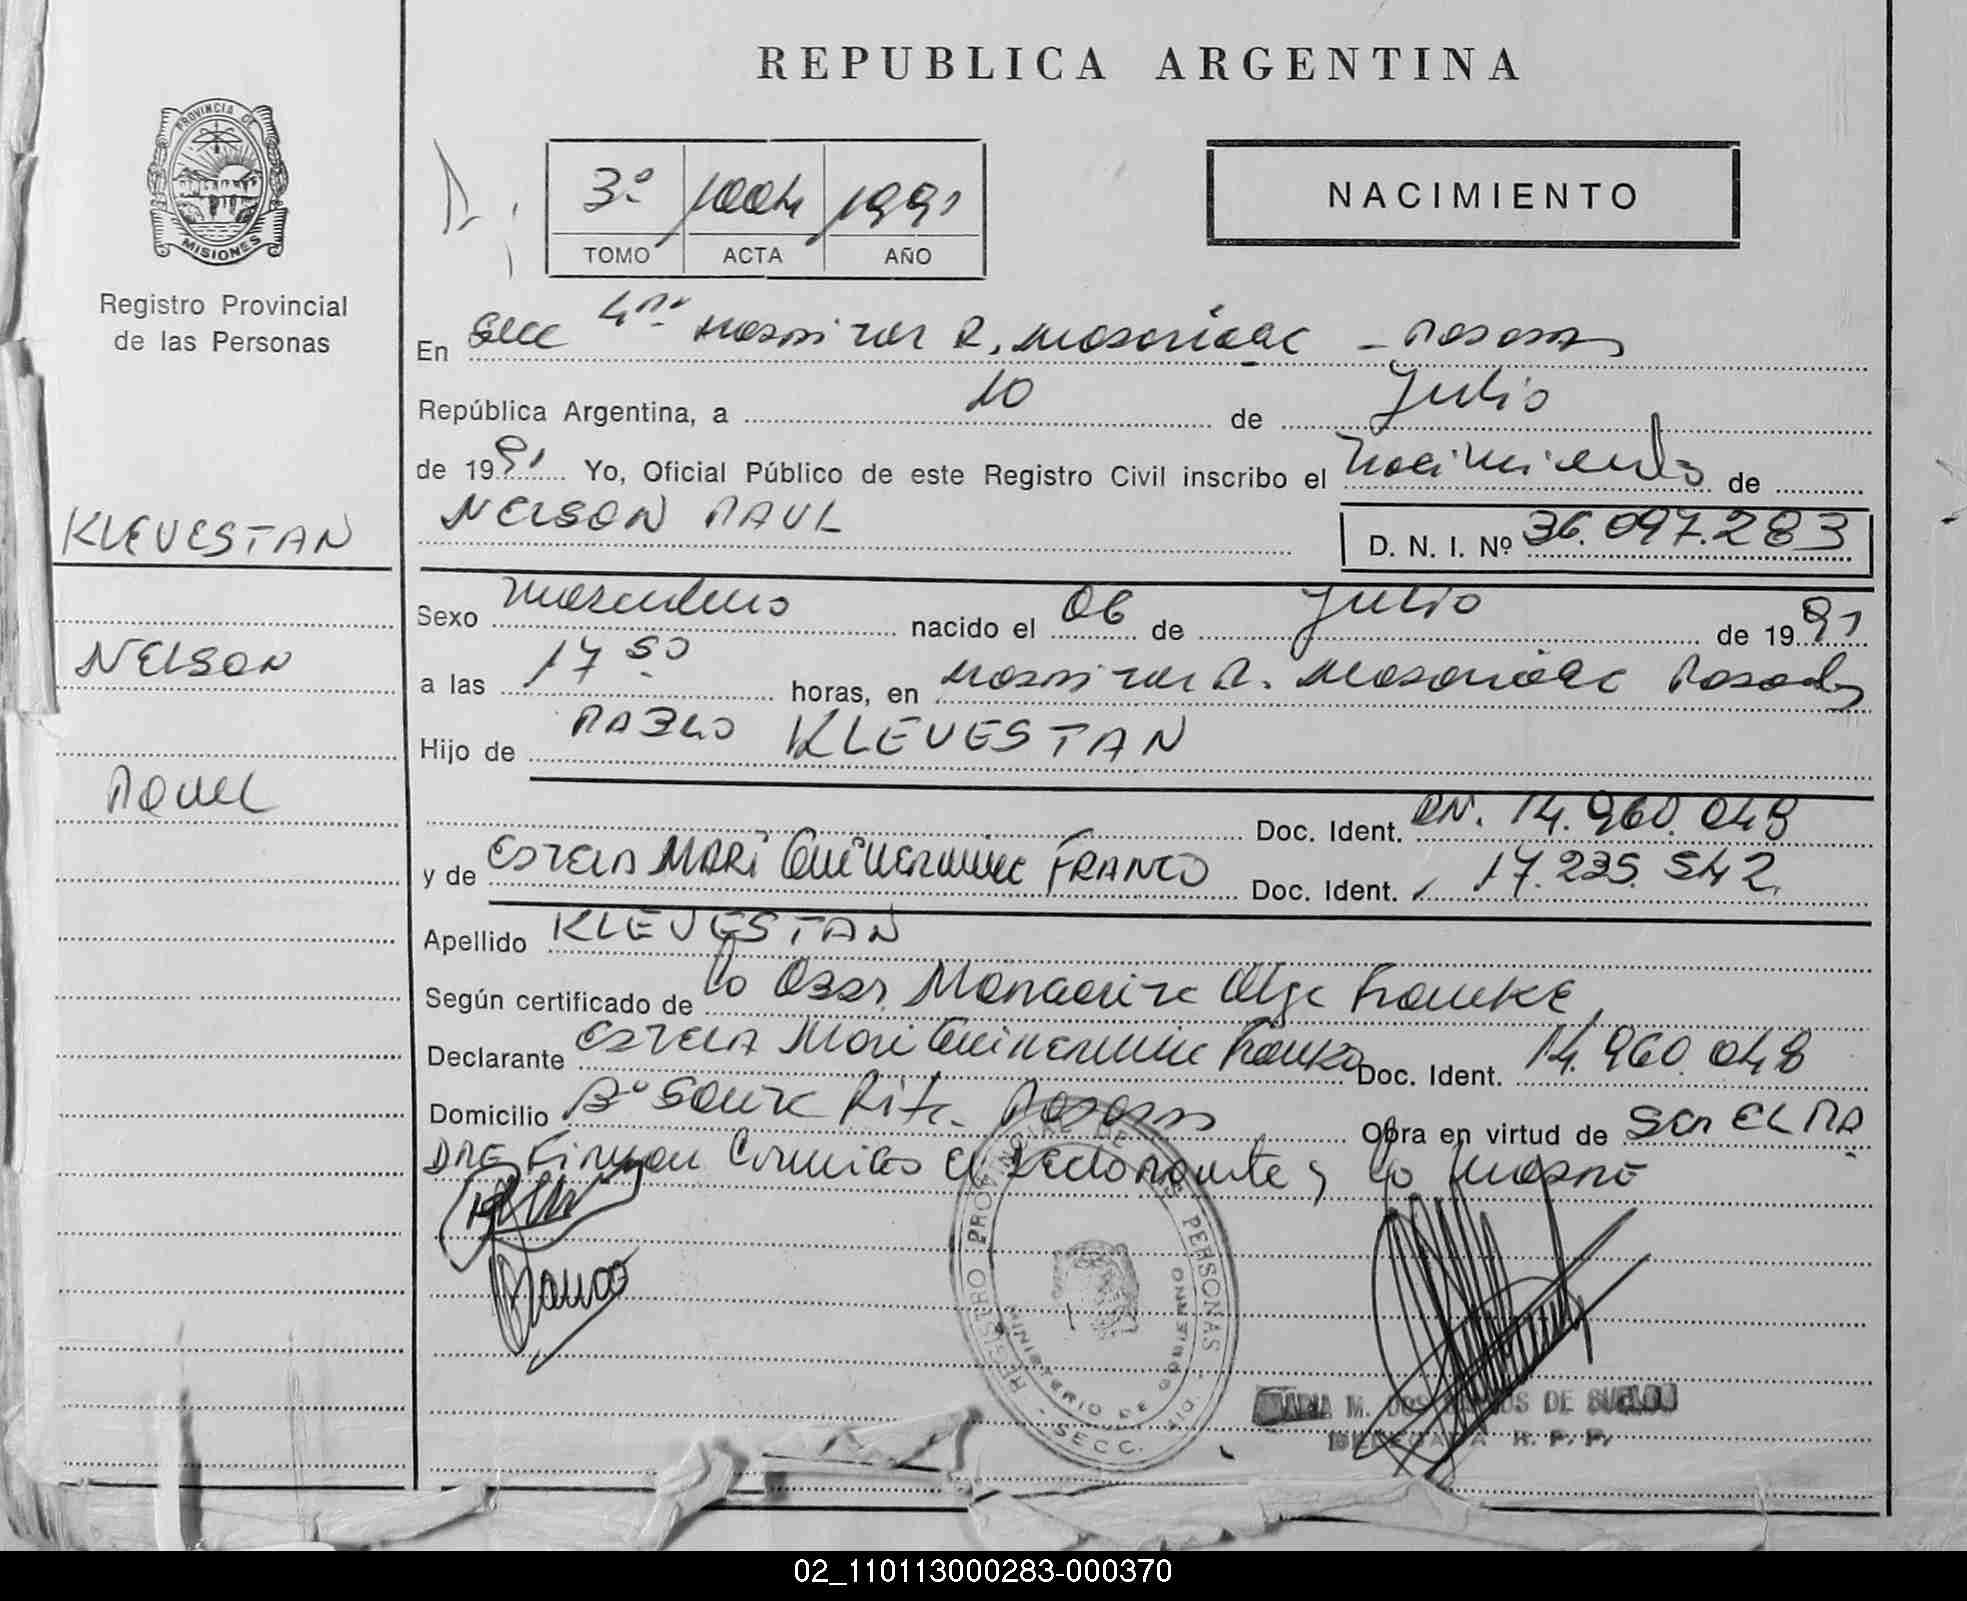 REPUBLICA ARGENTINA
PROVINCIA DE
MISIONES
Registro Provincial
de las Personas
3º 1004 1991
TOMO ACTA AÑO
NACIMIENTO
En Secc 4ta Hospital R. Madariaga - Posadas
República Argentina, a 10 de Julio
de 1991 Yo, Oficial Público de este Registro Civil inscribo el Nacimiento de
NELSON RAUL
D. N. I. Nº 36.097.283
KLEVESTAN
NELSON
RAUL
Sexo Masculino nacido el 06 de Julio de 1991
a las 17 50 horas, en Hospital R. Madariaga Posadas
Hijo de PABLO KLEVESTAN
Doc. Ident. DN. 14.960.048
y de ESTELA MARI FRANCO Doc. Ident. 17.235.542
Apellido KLEVESTAN
Según certificado de la Obst. Margarita Olga Franke,
Declarante ESTELA Mari Franko Doc. Ident. 14.960.048
Domicilio Bº Santa Rita Posadas Obra en virtud de Ser EL PA
DRE Firman Conmigo el Declarante y la Madre
Franco
REGISTRO PROVINCIAL DE LAS PERSONAS
MINISTERIO DE GOBIERNO
SECC. 4ta
MARIA M. DOS SANTOS DE
DELEGADA R. P. P.
02_110113000283-000370